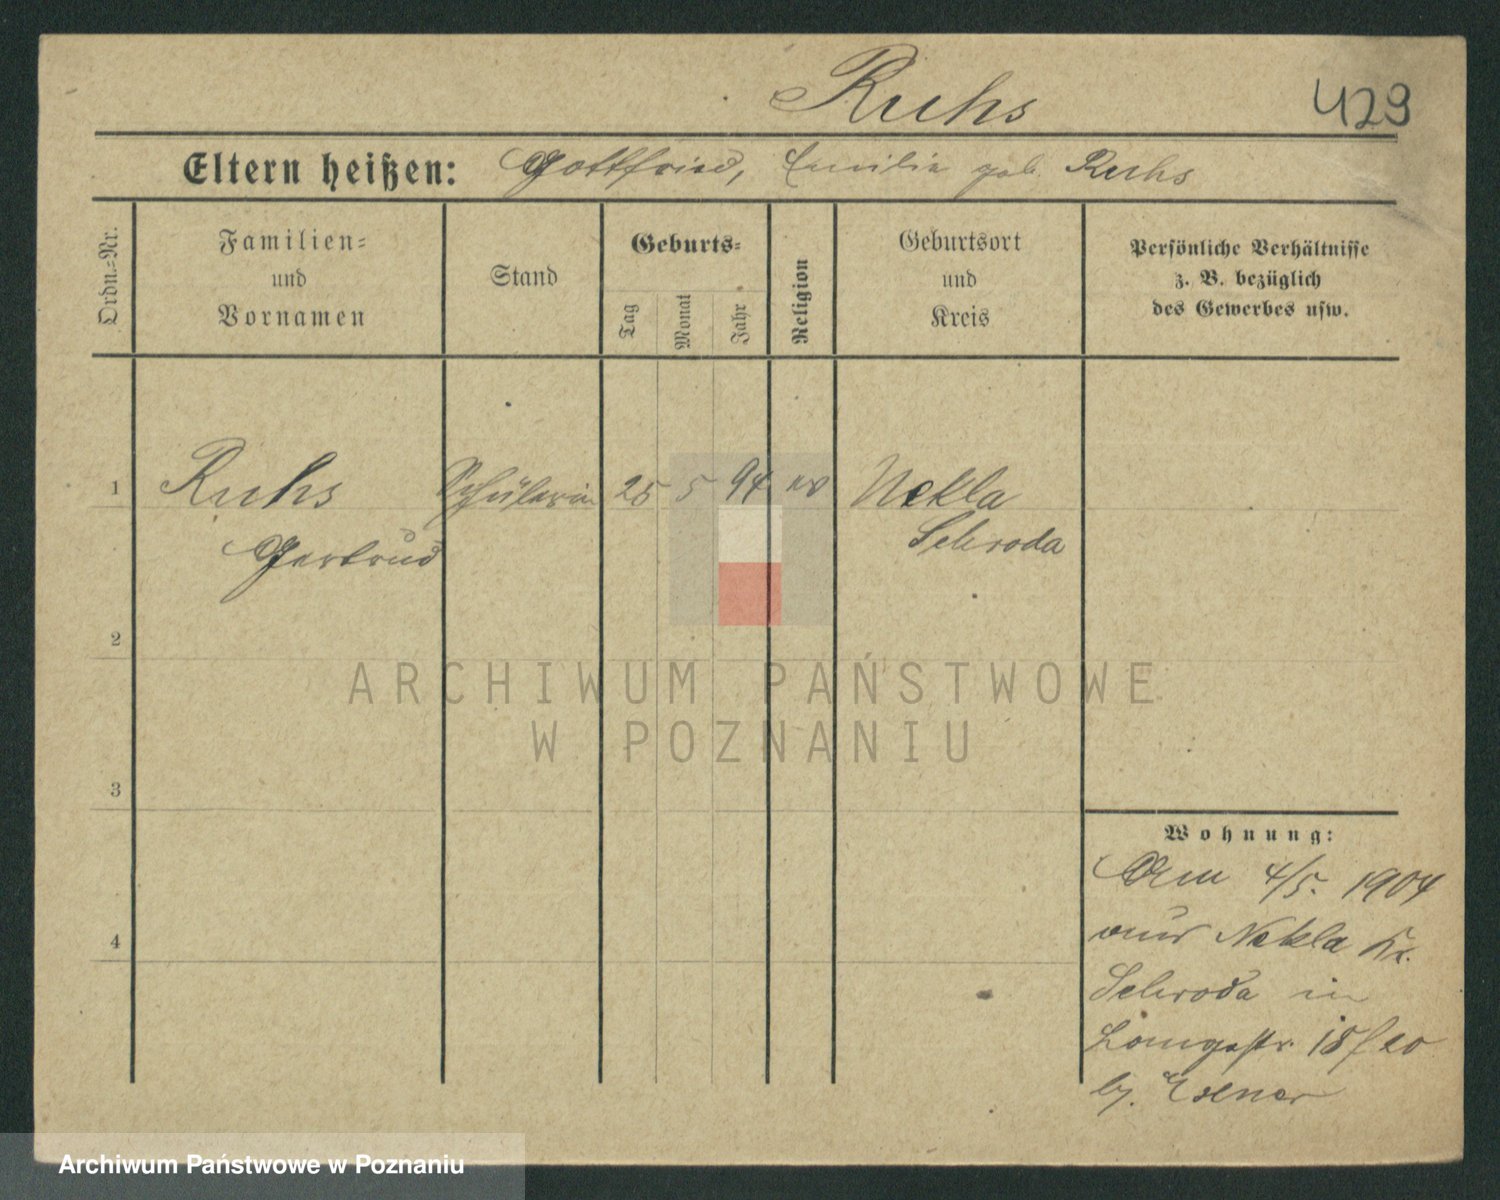 Ruhs
429
Eltern heißen: Gottfried, Emilie geb. Ruhs
Ordn.-Nr.
Familien-
und
Vornamen
Stand
Geburts-
Tag
Monat
Jahr
Religion
Geburtsort
und
Kreis
Persönliche Verhältnisse
z. B. bezüglich
des Gewerbes usw.
1 Ruhs Schülerin 25 5 94 ev Nekla
Gertrud Schroda
2
3
4
Wohnung:
Am 4/5. 1904
aus Nekla Kr.
Schroda in
Langestr. 18/20
b/.
ARCHIWUM PAŃSTWOWE
W POZNANIU
Archiwum Państwowe w Poznaniu